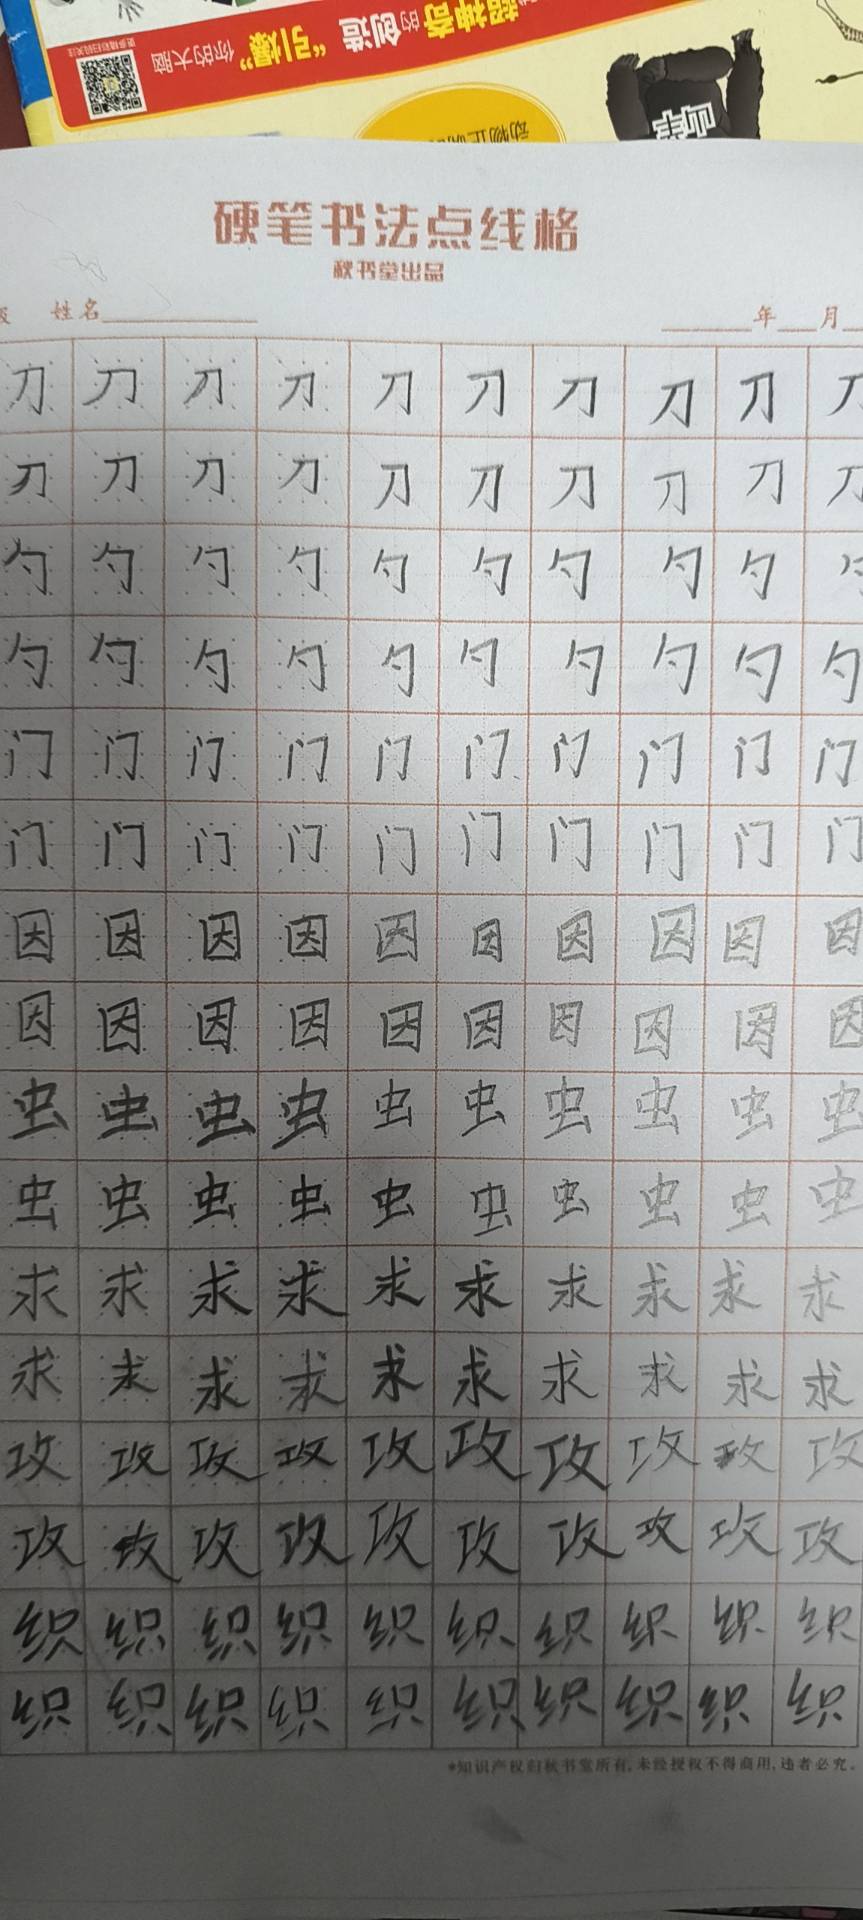 超神奇的创造
“引爆”你的大脑
更多精彩扫码关注
硬笔书法点线格
秋书堂出品
姓名 年 月
刀 刀 刀 刀 刀 刀 刀 刀 刀 刀
刀 刀 刀 刀 刀 刀 刀 刀 刀 刀
勺 勺 勺 勺 勺 勺 勺 勺 勺 勺
勺 勺 勺 勺 勺 勺 勺 勺 勺 勺
门 门 门 门 门 门 门 门 门 门
门 门 门 门 门 门 门 门 门 门
因 因 因 因 因 因 因 因 因 因
因 因 因 因 因 因 因 因 因 因
虫 虫 虫 虫 虫 虫 虫 虫 虫 虫
虫 虫 虫 虫 虫 虫 虫 虫 虫 虫
求 求 求 求 求 求 求 求 求 求
求 求 求 求 求 求 求 求 求 求
攻 攻 攻 攻 攻 攻 攻 攻 攻 攻
攻 攻 攻 攻 攻 攻 攻 攻 攻 攻
织 织 织 织 织 织 织 织 织 织
织 织 织 织 织 织 织 织 织 织
*知识产权归秋书堂所有,未经授权不得商用,违者必究。